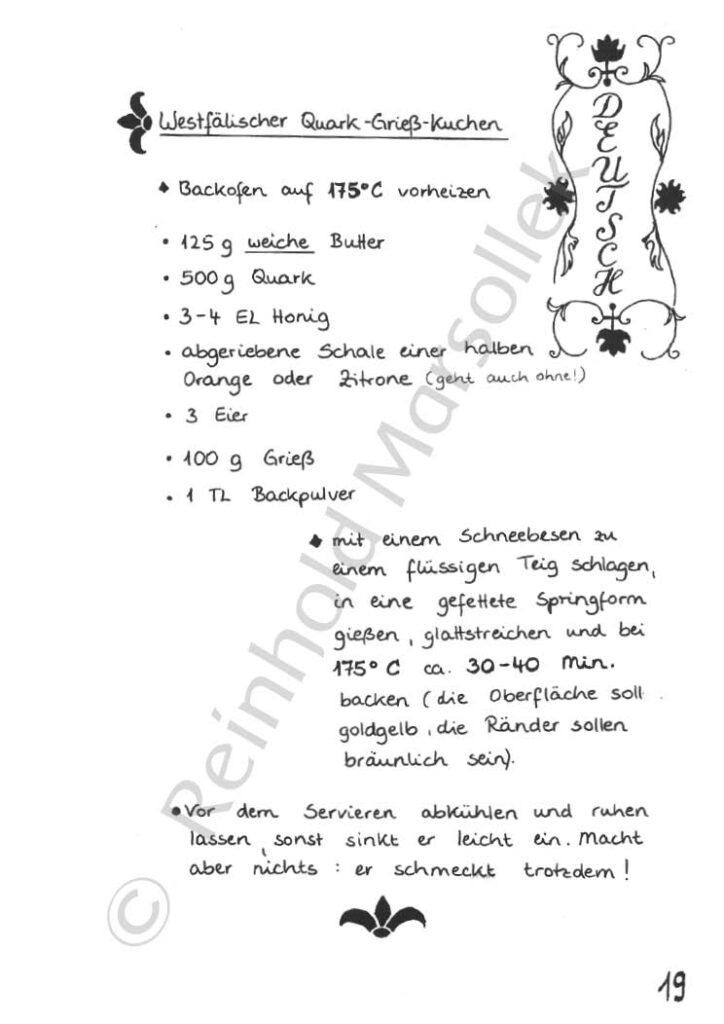 Westfälischer Quark-Grieß-Kuchen
DEUTSCH
Backofen auf 175°C vorheizen
• 125 g weiche Butter
• 500 g Quark
• 3-4 EL Honig
• abgeriebene Schale einer halben
Orange oder Zitrone (geht auch ohne!)
• 3 Eier
• 100 g Grieß
• 1 TL Backpulver
mit einem Schneebesen zu
einem flüssigen Teig schlagen,
in eine gefettete Springform
gießen, glattstreichen und bei
175° C ca. 30-40 Min.
backen (die Oberfläche soll
goldgelb, die Ränder sollen
bräunlich sein).
• Vor dem Servieren abkühlen und ruhen
lassen, sonst sinkt er leicht ein. Macht
aber nichts: er schmeckt trotzdem!
19
© Reinhold Marsollek